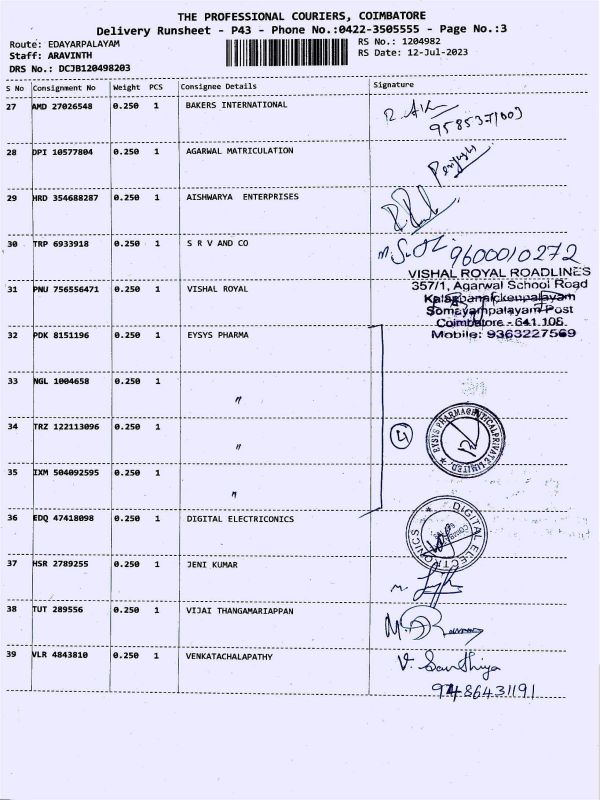 THE PROFESSIONAL COURIERS, COIMBATORE
Delivery Runsheet - P43 - Phone No.:0422-3505555 - Page No.:3
Route: EDAYARPALAYAM
Staff: ARAVINTH
DRS No.: DCJB120498203
RS No.: 1204982
RS Date: 12-Jul-2023
S No Consignment No Weight PCS Consignee Details Signature
27 AMD 27026548 0.250 1 BAKERS INTERNATIONAL
28 DPI 10577804 0.250 1 AGARWAL MATRICULATION
29 HRD 354688287 0.250 1 AISHWARYA ENTERPRISES
30 TRP 6933918 0.250 1 S R V AND CO 9600010272
31 PNU 756556471 0.250 1 VISHAL ROYAL
VISHAL ROYAL ROADLINES
357/1, Agarwal School Road
Somayampalayam Post
Coimbatore - 641 108.
Mobile: 9363227569
32 PDK 8151196 0.250 1 EYSYS PHARMA
33 NGL 1004658 0.250 1 〃
34 TRZ 122113096 0.250 1 〃 4
EYSYS PHARMACEUTICAL PRIVATE LIMITED
35 IXM 504092595 0.250 1 〃
36 EDQ 47418098 0.250 1 DIGITAL ELECTRICONICS
37 HSR 2789255 0.250 1 JENI KUMAR
38 TUT 289556 0.250 1 VIJAI THANGAMARIAPPAN
39 VLR 4843810 0.250 1 VENKATACHALAPATHY V. Santhiya
9486431191